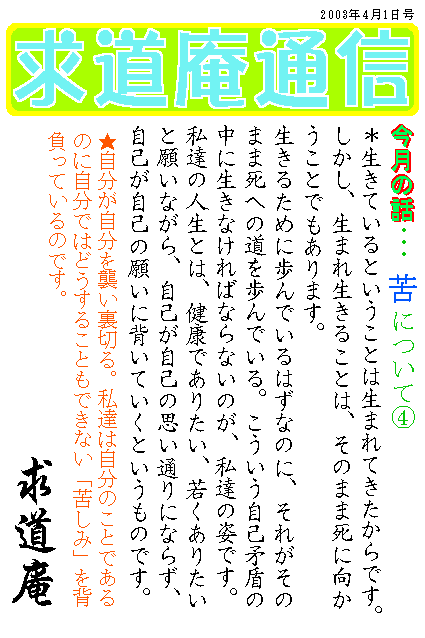 2003年4月1日号
求道庵通信
今月の話… 苦について④
＊生きているということは生まれてきたからです。
しかし、生まれ生きることは、そのまま死に向か
うことでもあります。
生きるために歩んでいるはずなのに、それがその
まま死への道を歩んでいる。こういう自己矛盾の
中に生きなければならないのが、私達の姿です。
私達の人生とは、健康でありたい、若くありたい
と願いながら、自己が自己の思い通りにならず、
自己が自己の願いに背いていくというものです。
★自分が自分を襲い裏切る。私達は自分のことである
のに自分ではどうすることもできない「苦しみ」を背
負っているのです。
求道庵